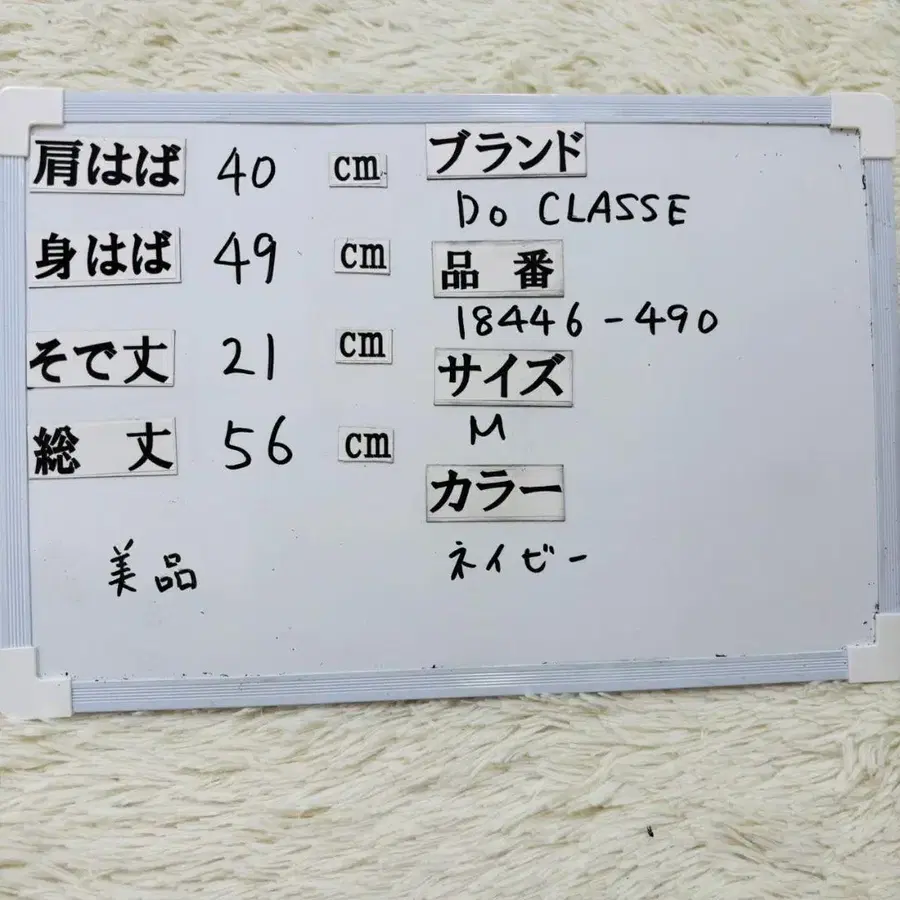 肩はば 40 cm
身はば 49 cm
そで丈 21 cm
総 丈 56 cm
美品
ブランド
Do CLASSE
品 番
18446-490
サイズ
M
カラー
ネイビー